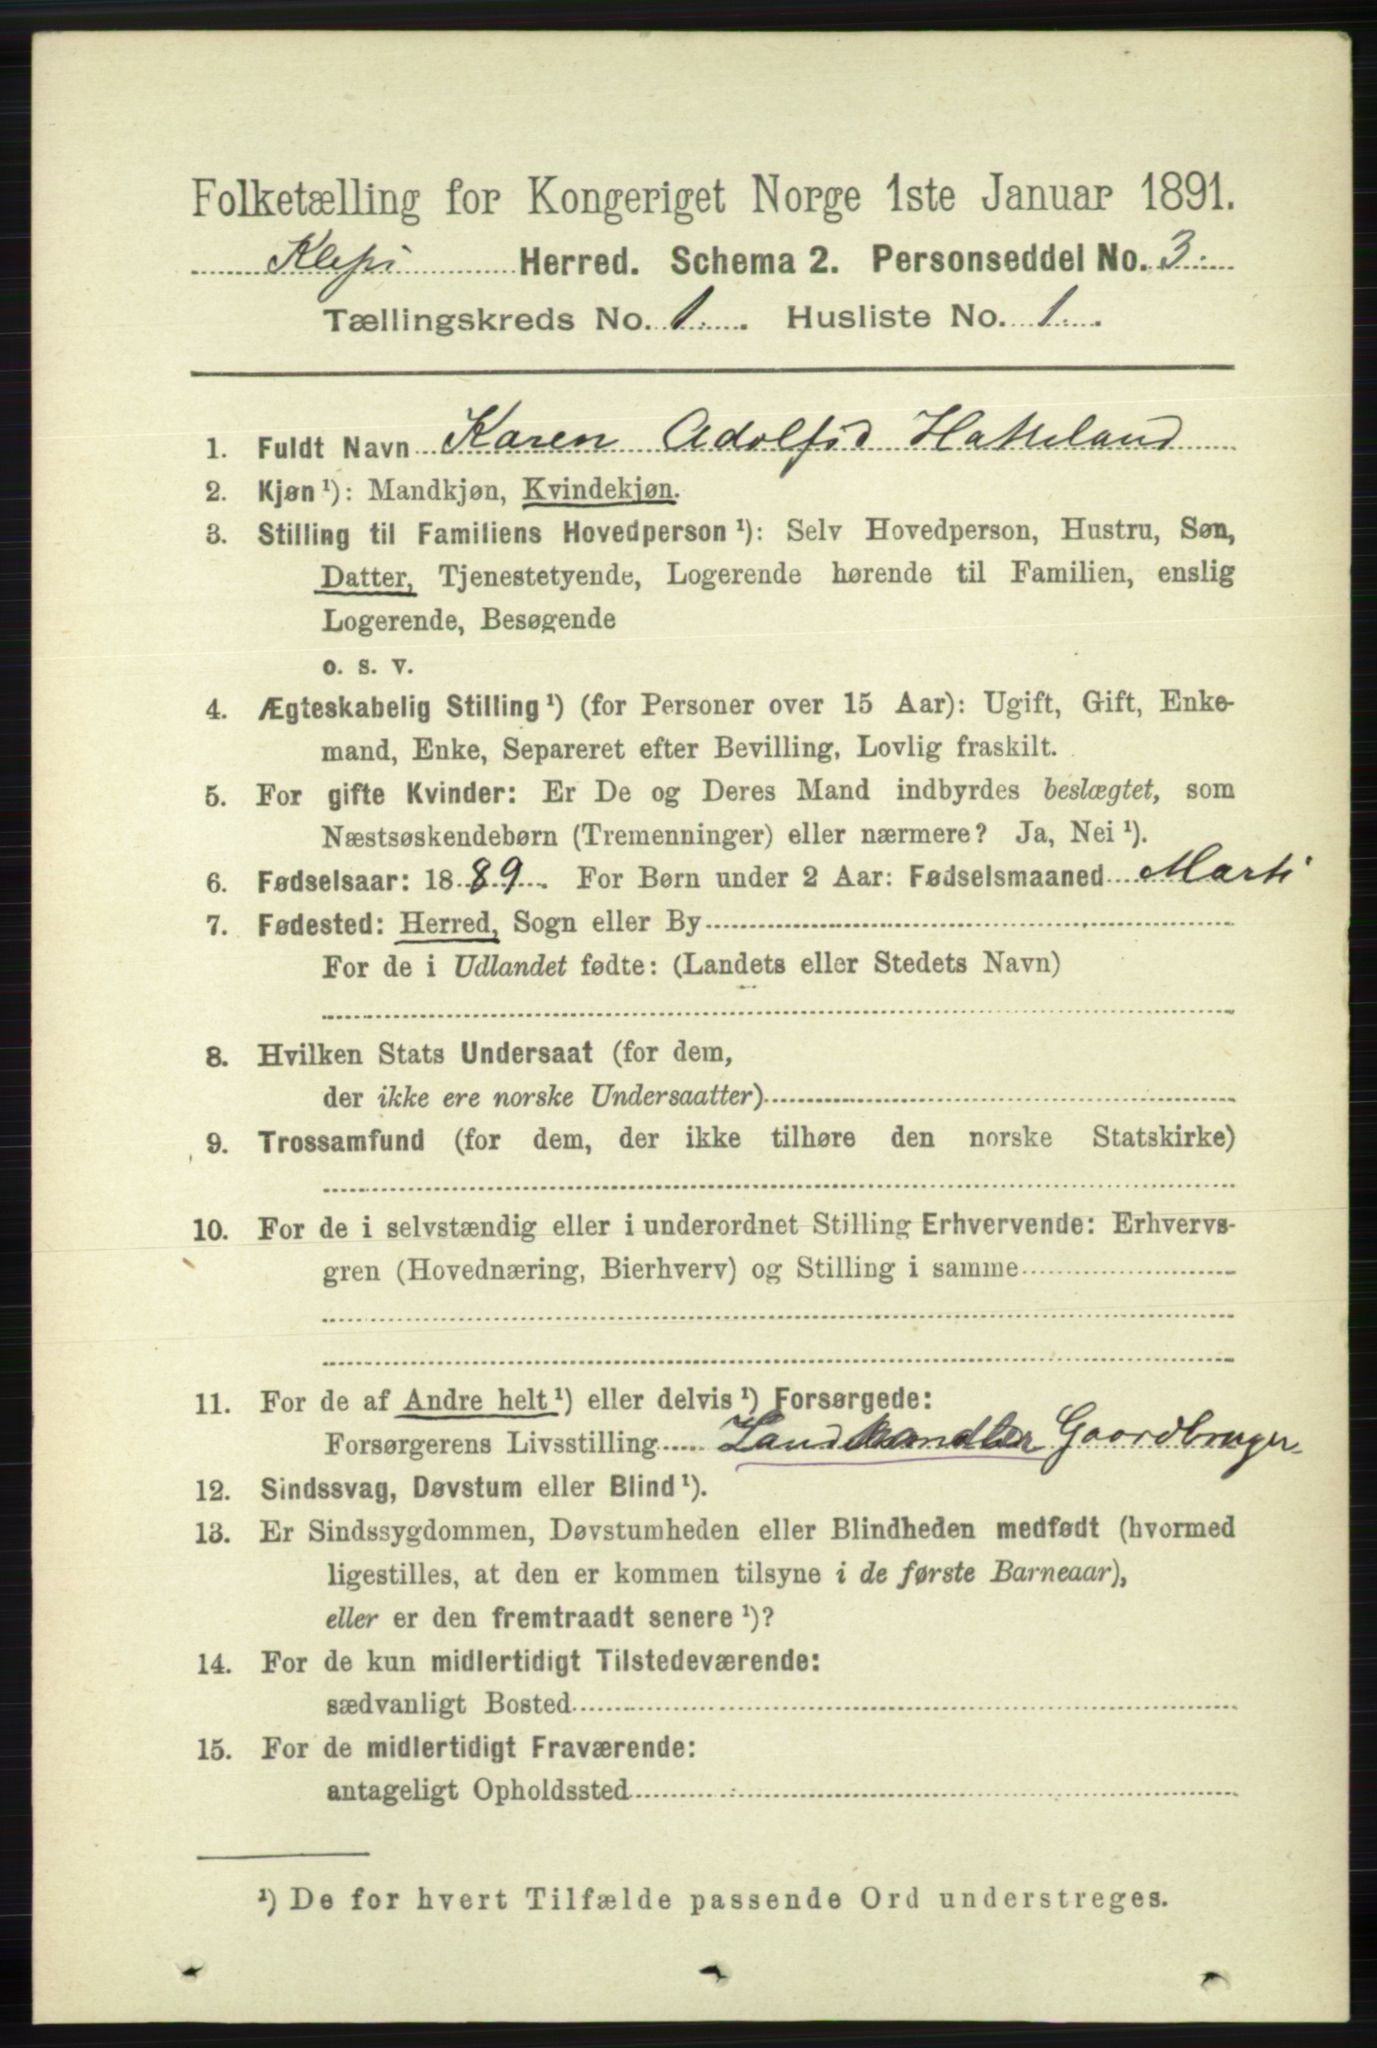 Folketælling for Kongeriget Norge 1ste Januar 1891.
Klepp Herred. Schema 2. Personseddel No. 3.
Tællingskreds No. 1. Husliste No. 1.
1. Fuldt Navn Karen Adolfid Hatteland
2. Kjøn ¹): Mandkjøn, Kvindekjøn.
3. Stilling til Familiens Hovedperson ¹): Selv Hovedperson, Hustru, Søn,
Datter, Tjenestetyende, Logerende hørende til Familien, enslig
Logerende, Besøgende
o. s. v.
4. Ægteskabelig Stilling ¹) (for Personer over 15 Aar): Ugift, Gift, Enke-
mand, Enke, Separeret efter Bevilling, Lovlig fraskilt.
5. For gifte Kvinder: Er De og Deres Mand indbyrdes beslægtet, som
Næstsøskendebørn (Tremenninger) eller nærmere? Ja, Nei ¹).
6. Fødselsaar: 1889. For Børn under 2 Aar: Fødselsmaaned Marts
7. Fødested: Herred, Sogn eller By
For de i Udlandet fødte: (Landets eller Stedets Navn)
8. Hvilken Stats Undersaat (for dem,
der ikke ere norske Undersaatter)
9. Trossamfund (for dem, der ikke tilhøre den norske Statskirke)
10. For de i selvstændig eller i underordnet Stilling Erhvervende: Erhvervs-
gren (Hovednæring, Bierhverv) og Stilling i samme
11. For de af Andre helt ¹) eller delvis ¹) Forsørgede:
Forsørgerens Livsstilling Landhandler Gaardbruger
12. Sindssvag, Døvstum eller Blind ¹).
13. Er Sindssygdommen, Døvstumheden eller Blindheden medfødt (hvormed
ligestilles, at den er kommen tilsyne i de første Barneaar),
eller er den fremtraadt senere ¹)?
14. For de kun midlertidigt Tilstedeværende:
sædvanligt Bosted
15. For de midlertidigt Fraværende:
antageligt Opholdssted
¹) De for hvert Tilfælde passende Ord understreges.